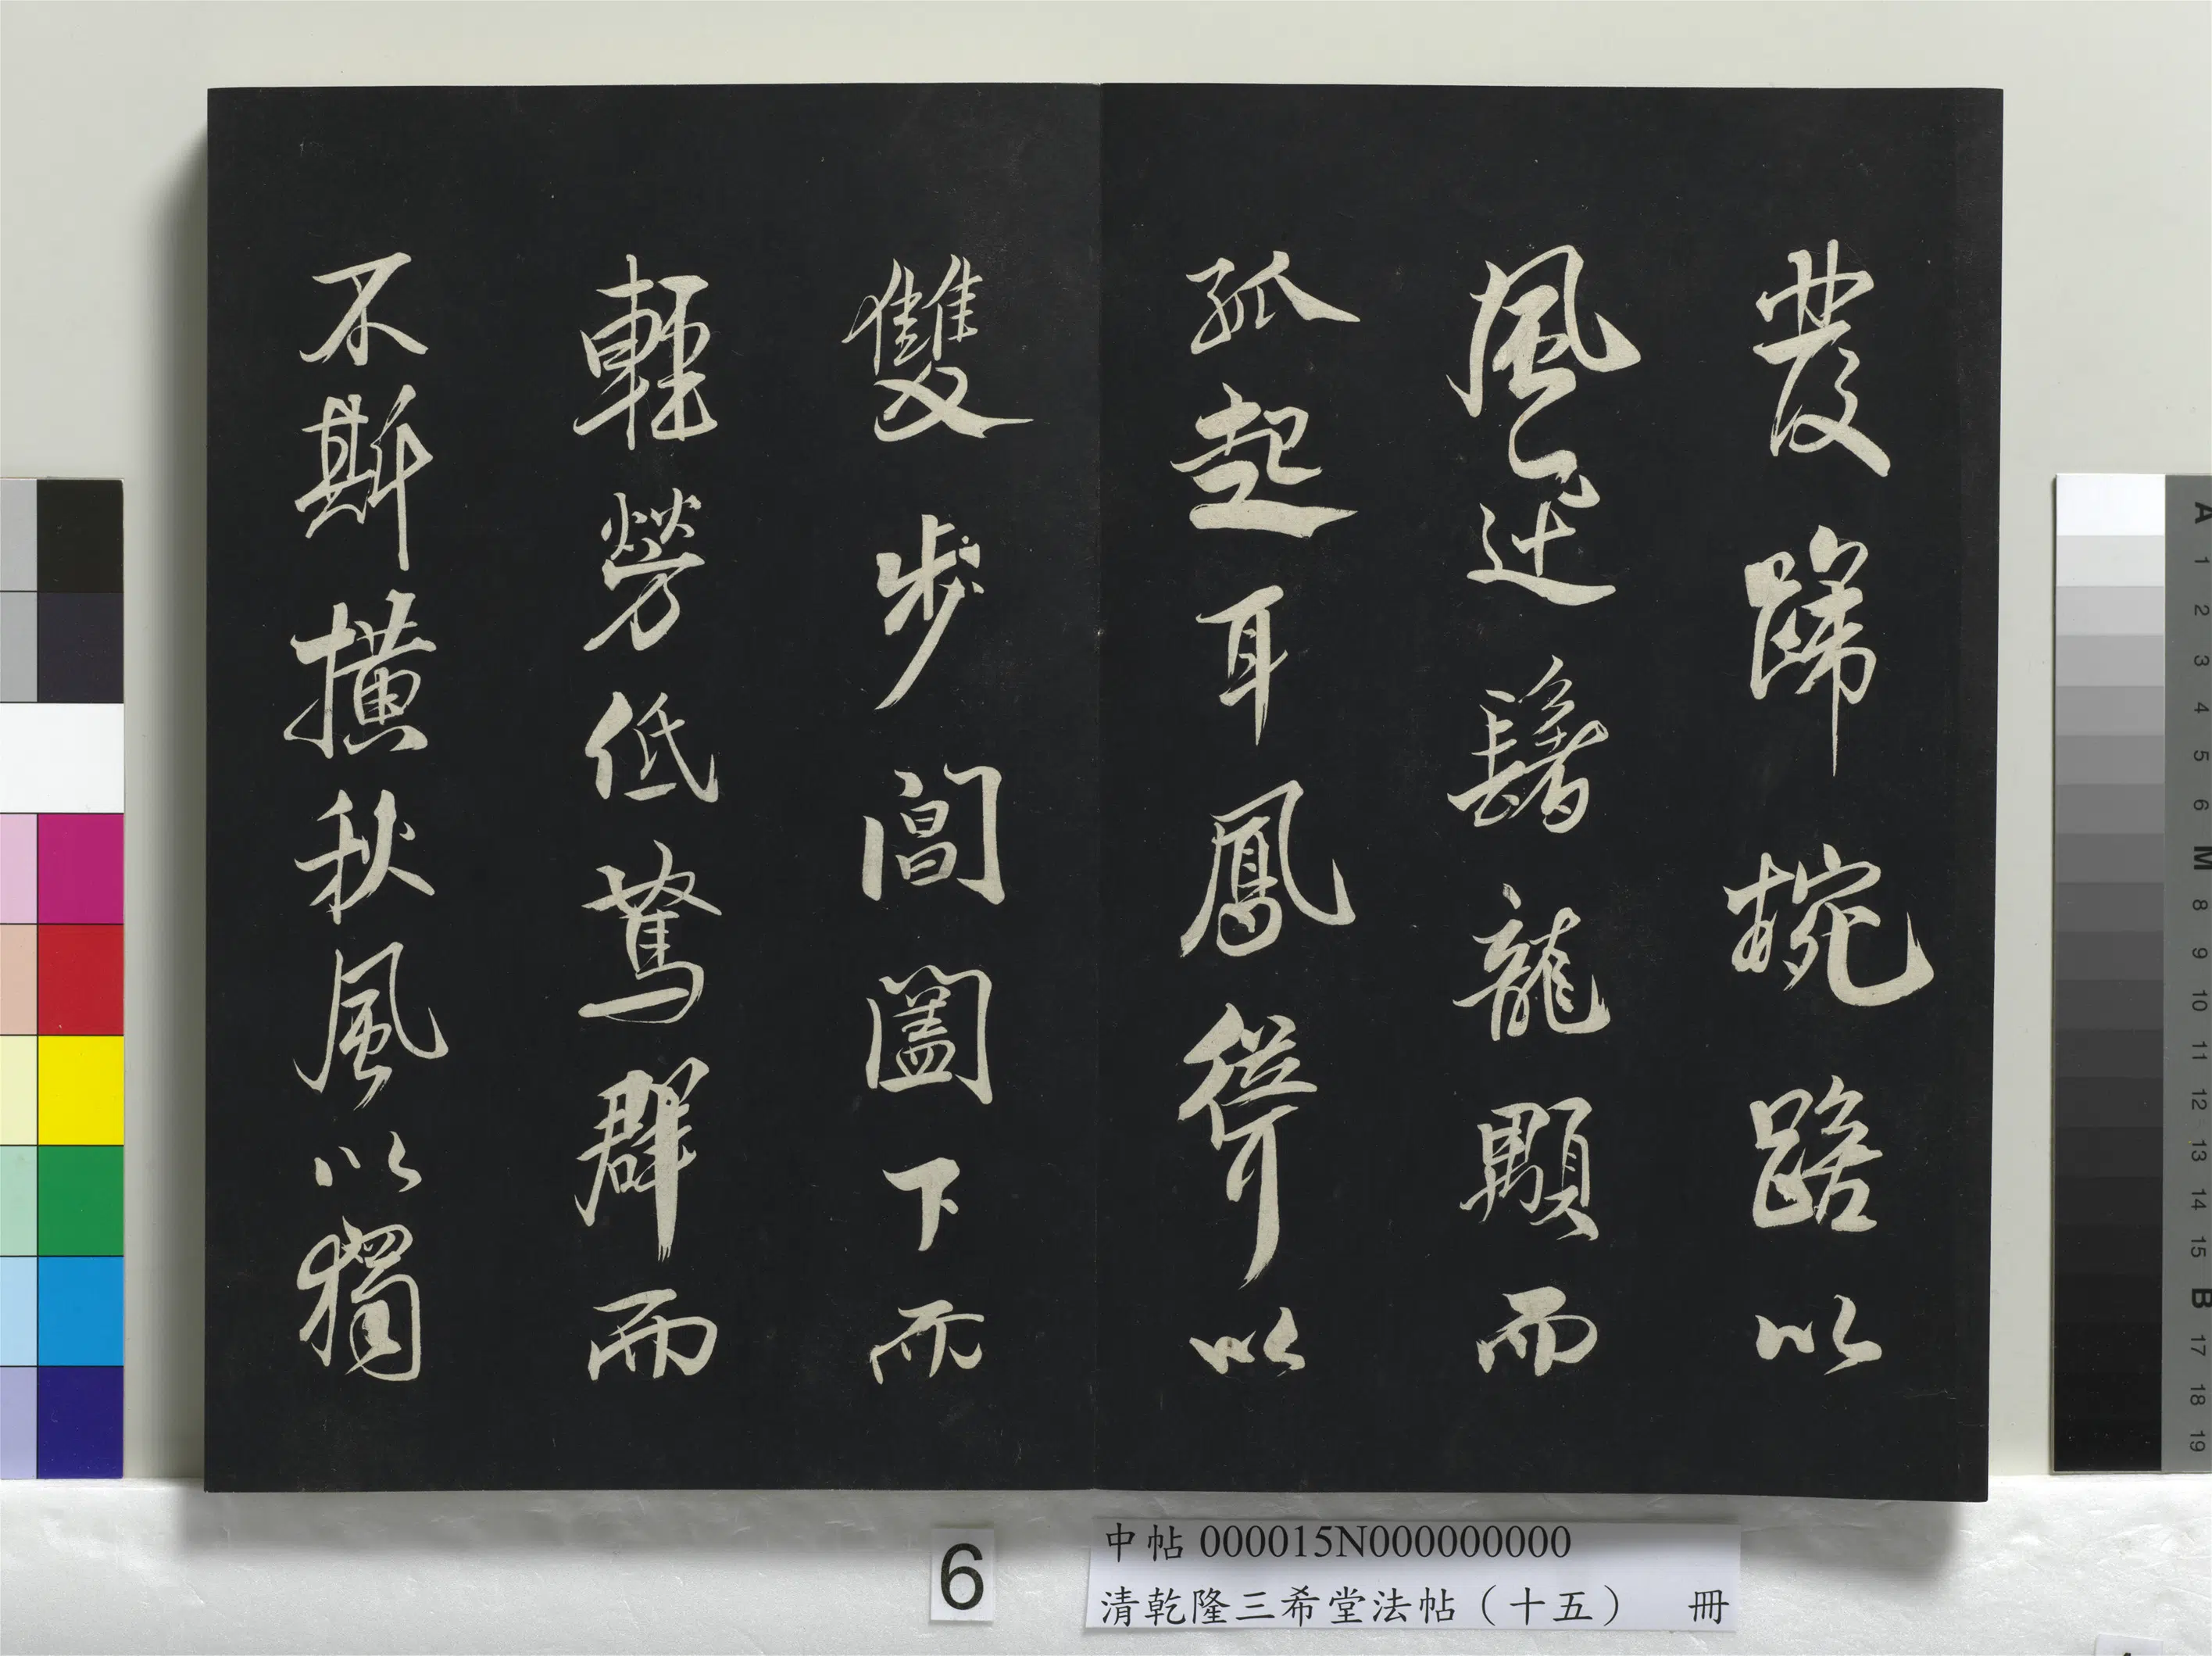 發蹄椀踣以
風迅鬐龍顒而
孤起耳鳳聳以
雙步閶闔下而
輕勞低駑群而
不斯橫秋風以獨
6
中帖 000015N000000000
清乾隆三希堂法帖（十五） 冊
A 1 2 3 4 5 6 M 8 9 10 11 12 13 14 15 B 17 18 19